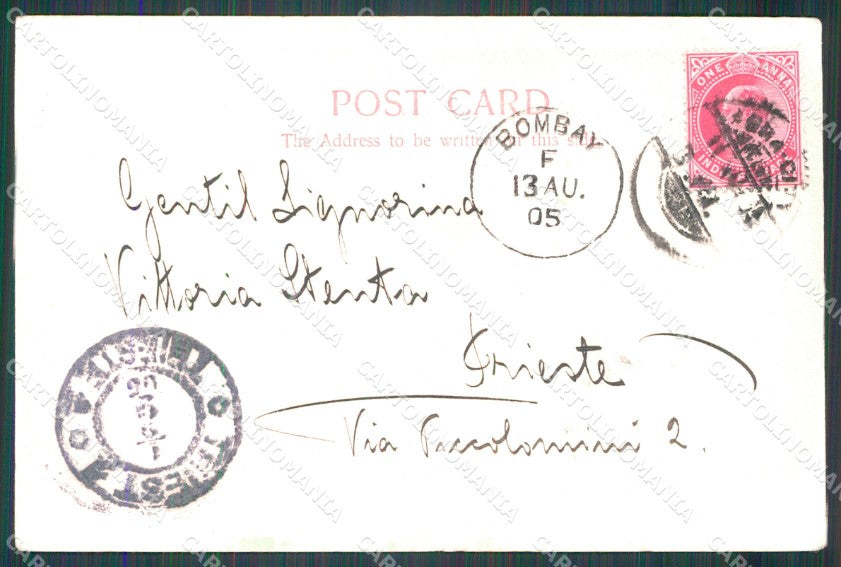 POST CARD
The Address to be written on this side
ONE ANNA
BOMBAY
F
13 AU.
05
Gentil Signorina
Vittoria Stenta
Trieste
Via Piccolomini 2.
TRIEST
CARTOLINOMANIA